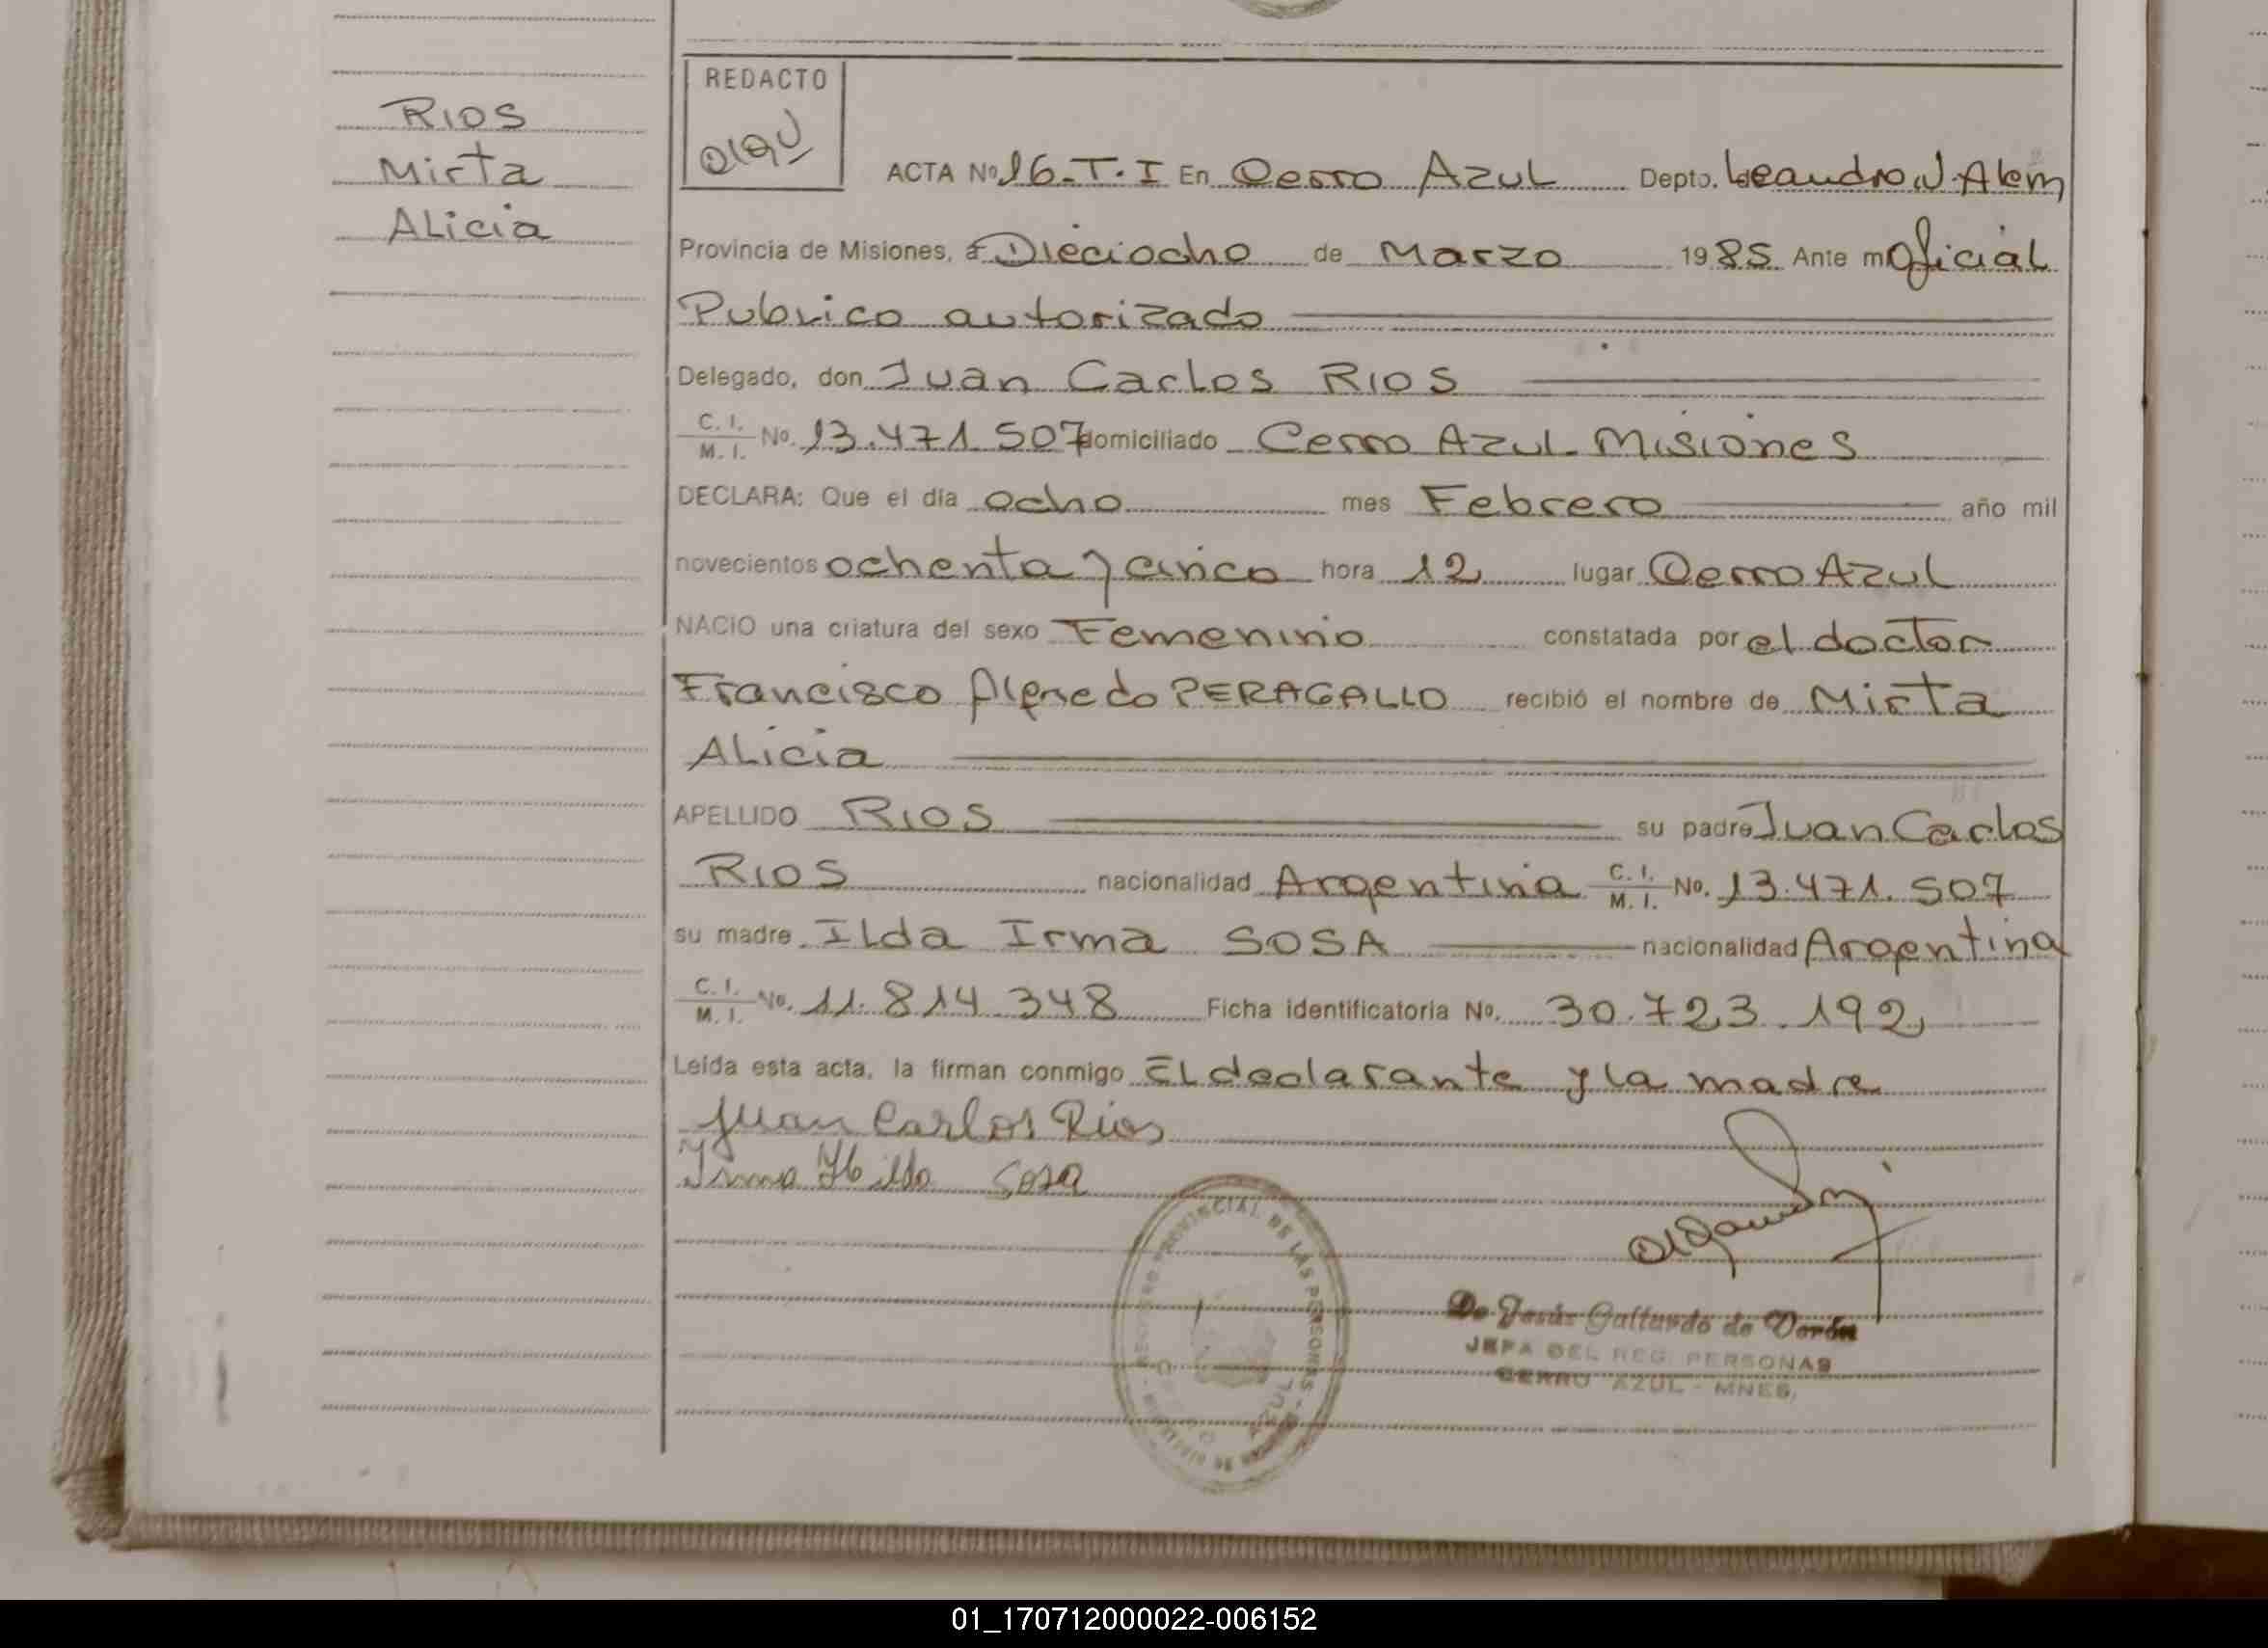 RIOS
Mirta
ALicia
REDACTO
ACTA Nº 16-T.I En Cerro AZUL Depto. Leandro N. Alem
Provincia de Misiones, a Dieciocho de Marzo 1985 Ante mí Oficial
Publico autorizado
Delegado, don Juan Carlos RIOS
C. I. / M. I. No. 13.471.507 domiciliado Cerro AZUL Misiones
DECLARA: Que el día ocho mes Febrero año mil
novecientos ochenta y cinco hora 12 lugar Cerro AZUL
NACIO una criatura del sexo Femenino constatada por el doctor
Francisco Alfredo PERAGALLO recibió el nombre de Mirta
ALicia
APELLIDO RIOS su padre Juan Carlos
RIOS nacionalidad Argentina C. I. / M. I. No. 13.471.507
su madre ILda Irma SOSA nacionalidad Argentina
C. I. / M. I. No. 11.814.348 Ficha identificatoria No. 30.723.192
Leída esta acta, la firman conmigo EL declarante y la madre
Juan Carlos Rios
Irma Hilda Sosa
REGISTRO PROVINCIAL DE LAS PERSONAS
AZUL
De Jesús Gallardo de Verón
JEFA DEL REG. PERSONAS
CERRO AZUL - MNES.
01_170712000022-006152